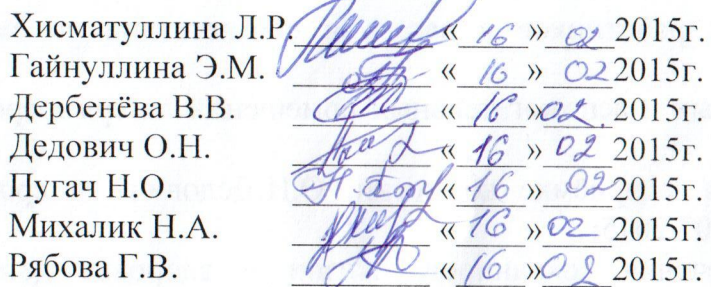 Хисматуллина Л.Р. « 16 » 02 2015г.
Гайнуллина Э.М. « 16 » 02 2015г.
Дербенёва В.В. « 16 » 02. 2015г.
Дедович О.Н. « 16 » 02 2015г.
Пугач Н.О. « 16 » 02 2015г.
Михалик Н.А. « 16 » 02 2015г.
Рябова Г.В. « 16 » 02 2015г.